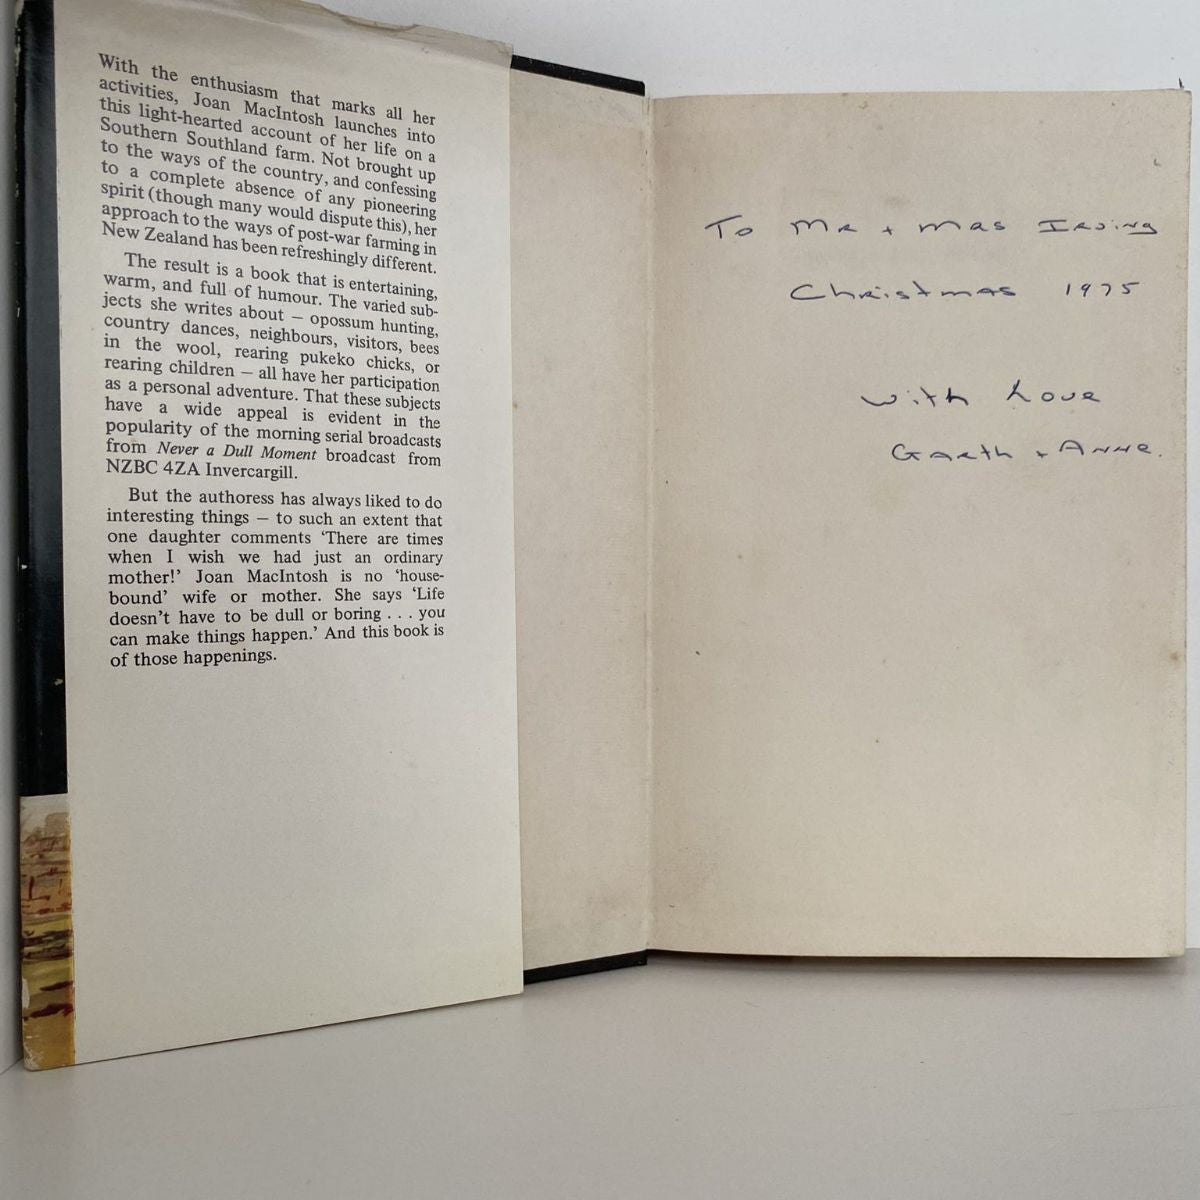 With the enthusiasm that marks all her
activities, Joan MacIntosh launches into
this light-hearted account of her life on a
Southern Southland farm. Not brought up
to the ways of the country, and confessing
to a complete absence of any pioneering
spirit (though many would dispute this), her
approach to the ways of post-war farming in
New Zealand has been refreshingly different.
The result is a book that is entertaining,
warm, and full of humour. The varied sub-
jects she writes about – opossum hunting,
country dances, neighbours, visitors, bees
in the wool, rearing pukeko chicks, or
rearing children – all have her participation
as a personal adventure. That these subjects
have a wide appeal is evident in the
popularity of the morning serial broadcasts
from Never a Dull Moment broadcast from
NZBC 4ZA Invercargill.
But the authoress has always liked to do
interesting things – to such an extent that
one daughter comments ‘There are times
when I wish we had just an ordinary
mother!’ Joan MacIntosh is no ‘house-
bound’ wife or mother. She says ‘Life
doesn’t have to be dull or boring . . . you
can make things happen.’ And this book is
of those happenings.
To Mr + Mrs Irving
Christmas 1975
with Love
Garth + Anne.